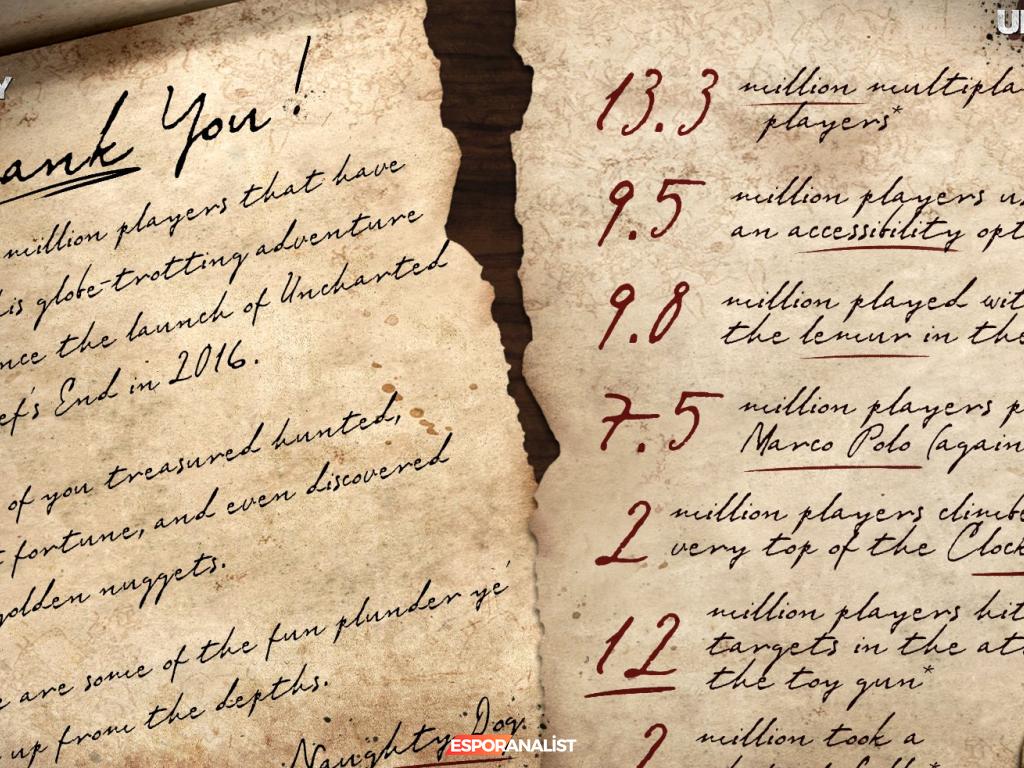 Y
ank You!
million players that have
is globe-trotting adventure
nce the launch of Uncharted
ef's End in 2016.
of you treasured hunted,
fortune, and even discovered
golden nuggets.
are some of the fun plunder ye'
up from the depths.
Naughty Dog.
U
13.3 million multipla
players*
9.5 million players u
an accessibility opt
9.8 million played wit
the lemur in the
7.5 million players p
Marco Polo (again
2 million players climbe
very top of the Clock
12 million players hit
targets in the att
the toy gun*
2 million took a
ESPORANALİST